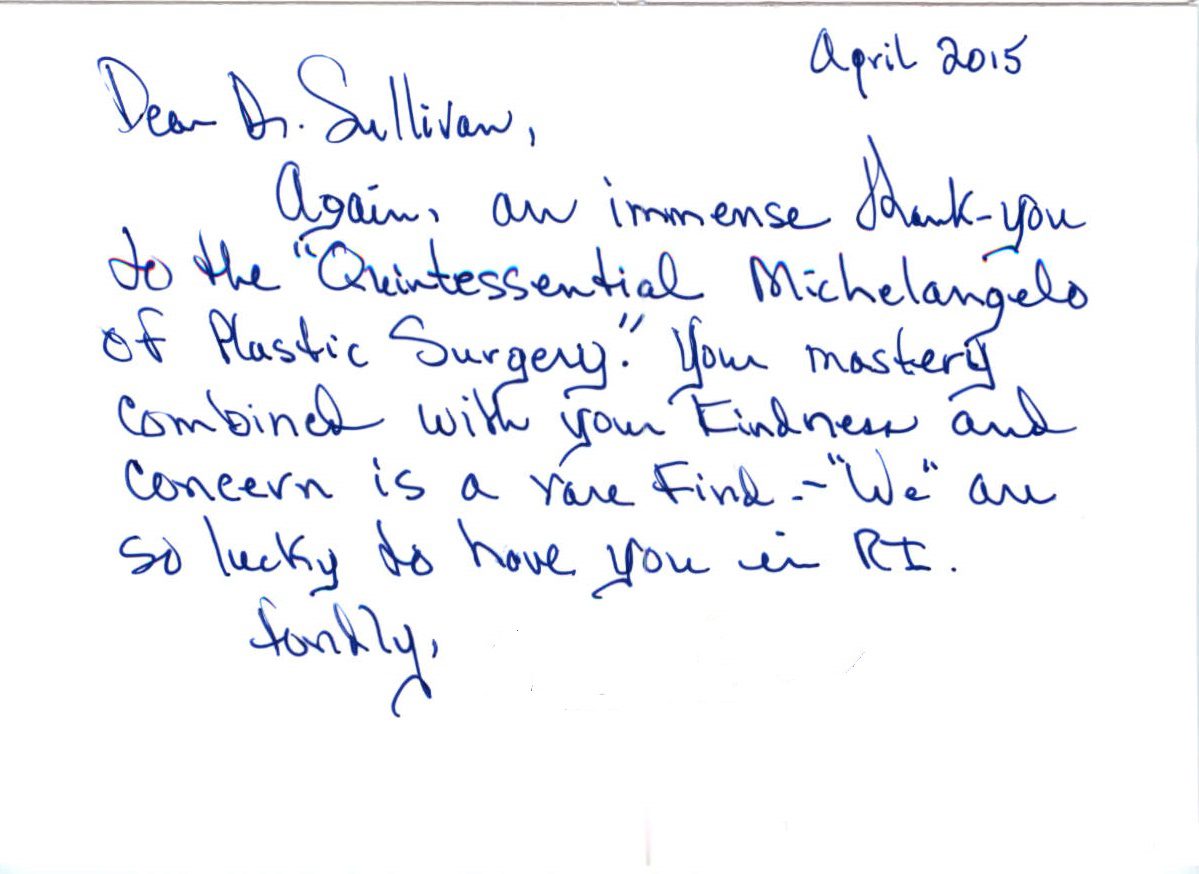 April 2015
Dear Dr. Sullivan,
Again, an immense thank-you
to the "Quintessential Michelangelo
of Plastic Surgery." Your mastery
combined with your kindness and
concern is a rare find - "We" are
so lucky to have you in RI.
fondly,